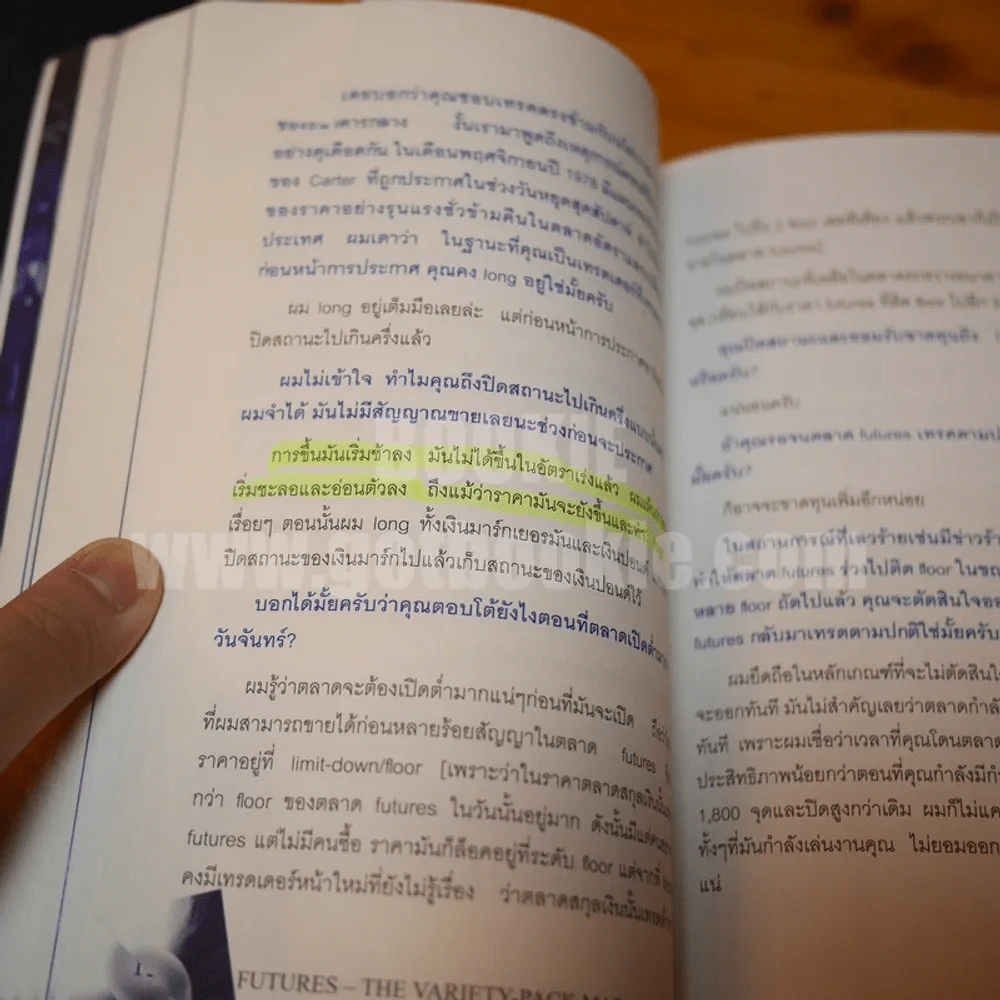 เคยบอกว่าคุณชอบเทรดตรงข้ามกับ
ของธนาคารกลาง งั้นเรามาพูดถึงเหตุการณ์
อย่างดุเดือดกัน ในเดือนพฤศจิกายนปี 1978
ของ Carter ที่ถูกประกาศในช่วงวันหยุดสุดสัปดาห์
ของราคาอย่างรุนแรงชั่วข้ามคืนในตลาดอัตราแลก
ประเทศ ผมเดาว่า ในฐานะที่คุณเป็นเทรดเดอร์
ก่อนหน้าการประกาศ คุณคง long อยู่ใช่มั้ยครับ
ผม long อยู่เต็มมือเลยล่ะ แต่ก่อนหน้าการประกาศ
ปิดสถานะไปเกินครึ่งแล้ว
ผมไม่เข้าใจ ทำไมคุณถึงปิดสถานะไปเกินครึ่งแบบ
ผมจำได้ มันไม่มีสัญญาณขายเลยนะช่วงก่อนจะประกาศ
การขึ้นมันเริ่มช้าลง มันไม่ได้ขึ้นในอัตราเร่งแล้ว
เริ่มชะลอและอ่อนตัวลง ถึงแม้ว่าราคามันจะยังขึ้นและทำ
เรื่อยๆ ตอนนั้นผม long ทั้งเงินมาร์กเยอรมันและเงินปอนด์
ปิดสถานะของเงินมาร์กไปแล้วเก็บสถานะของเงินปอนด์ไว้
บอกได้มั้ยครับว่าคุณตอบโต้ยังไงตอนที่ตลาดเปิดต่ำมาก
วันจันทร์?
ผมรู้ว่าตลาดจะต้องเปิดต่ำมากแน่ๆก่อนที่มันจะเปิด
ที่ผมสามารถขายได้ก่อนหลายร้อยสัญญาในตลาด futures
ราคาอยู่ที่ limit-down/floor [เพราะว่าในราคาตลาดสกุลเงินนั้น
กว่า floor ของตลาด futures ในวันนั้นอยู่มาก ดังนั้นมีแต่คน
futures แต่ไม่มีคนซื้อ ราคามันก็ล็อคอยู่ที่ระดับ floor แต่
คงมีเทรดเดอร์หน้าใหม่ที่ยังไม่รู้เรื่อง ว่าตลาดสกุลเงินนั้นเทรด
FUTURES – THE VARIETY-PACK
คุณปิดสถานะและยอมรับขาดทุนถึง
หรือครับ?
แน่นอนครับ
ถ้าคุณรอจนตลาด futures เทรดตาม
มั้ยครับ?
ก็อาจจะขาดทุนเพิ่มอีกหน่อย
ในสถานการณ์ที่เลวร้ายเช่นมีข่าวร้า
ทำให้ตลาด futures ร่วงไปติด floor ในขณ
หลาย floor ถัดไปแล้ว คุณจะตัดสินใจออ
futures กลับมาเทรดตามปกติใช่มั้ยครับ
ผมยึดถือในหลักเกณฑ์ที่จะไม่ตัดสินใ
จะออกทันที มันไม่สำคัญเลยว่าตลาดกำลั
ทันที เพราะผมเชื่อว่าเวลาที่คุณโดนตลาด
ประสิทธิภาพน้อยกว่าตอนที่คุณกำลังมีกำ
1,800 จุดและปิดสูงกว่าเดิม ผมก็ไม่แค
ทั้งๆที่มันกำลังเล่นงานคุณ ไม่ยอมออก
แน่